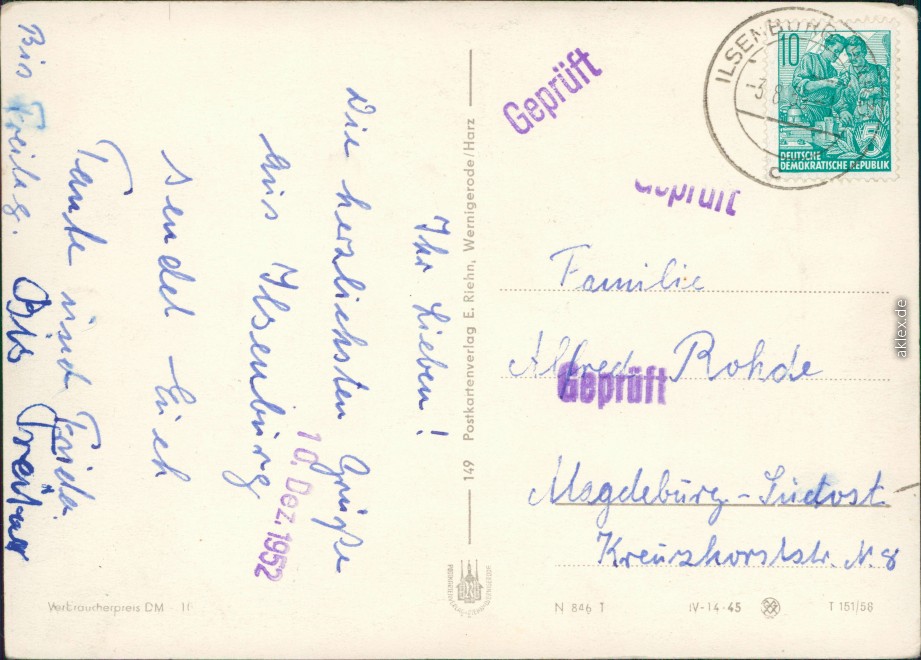 Ihr Lieben!
Die herzlichsten Grüße
aus Ilsenburg
sendet Euch
Tante und Frida.
Bis Freitag.
Bis Freitag
10. Dez. 1952
149 Postkartenverlag E. Riehn, Wernigerode/Harz
Geprüft
Geprüft
Geprüft
ILSENBURG
10
5
DEUTSCHE
DEMOKRATISCHE REPUBLIK
Familie
Alfred Rohde
Magdeburg-Südost
Kreuzhorststr. N. 8
Verbraucherpreis DM
N 846 T
IV-14-45
T 151/58
aklex.de